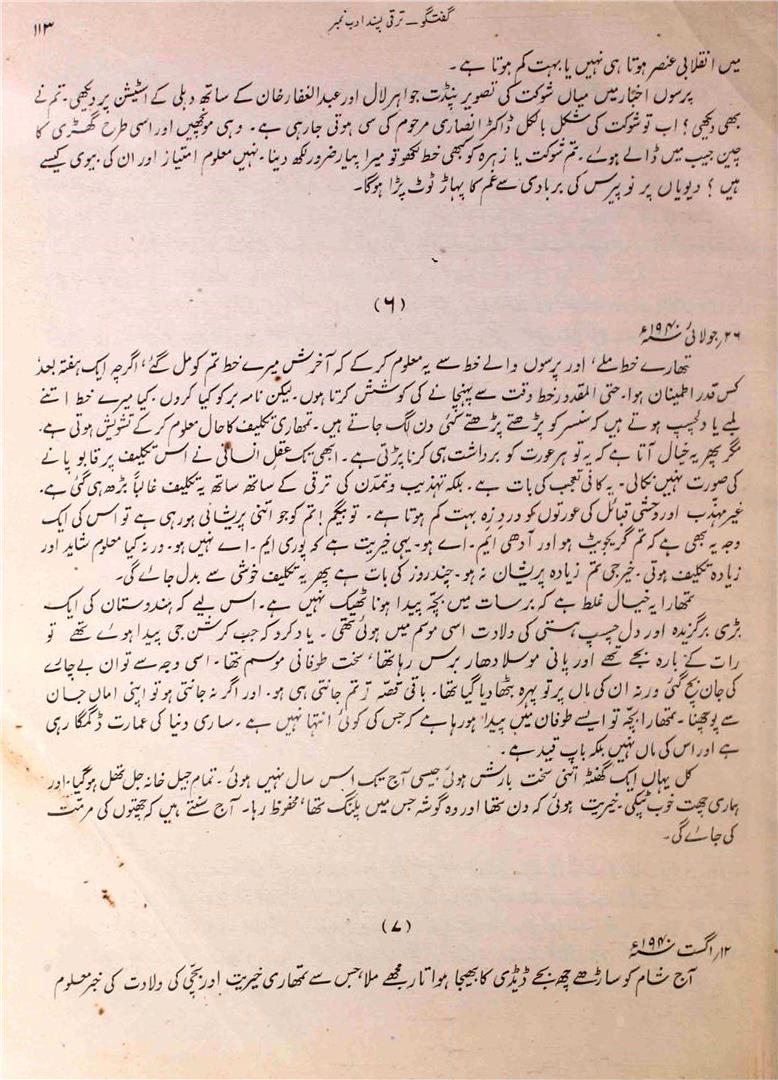 گفتگو ــ ترقی پسند ادب نمبر
۱۱۳
میں انقلابی عنصر ہوتا ہی نہیں یا بہت کم ہوتا ہے۔
پرسوں اخبار میں میاں شوکت کی تصویر پنڈت جواہر لال اور عبدالغفار خان کے ساتھ دہلی کے اسٹیشن پر دیکھی۔ تم نے
بھی دیکھی؟ اب تو شوکت کی شکل بالکل ڈاکٹر انصاری مرحوم کی سی ہوتی جارہی ہے۔ وہی مونچھیں اور اسی طرح گھڑی کا
چین جیب میں ڈالے ہوے۔ تم شوکت یا زہرہ کو کبھی خط لکھو تو میرا پیار ضرور لکھ دینا۔ نہیں معلوم امتیاز اور ان کی بیوی کیسے
ہیں؟ دیویاں پر تو پیرس کی بربادی سے غم کا پہاڑ ٹوٹ پڑا ہوگا۔
(۶)
۲۶؍جولائی ۱۹۴۰ء
تمھارے خط ملے، اور پرسوں والے خط سے یہ معلوم کرکے کہ آخرش میرے خط تم کو مل گئے، اگرچہ ایک ہفتہ بعد
کس قدر اطمینان ہوا۔ حتی المقدور خط وقت سے پہنچانے کی کوشش کرتا ہوں۔ لیکن نامہ بر کو کیا کروں۔ کیا میرے خط اتنے
لمبے یا دلچسپ ہوتے ہیں کہ سنسر کو پڑھتے پڑھتے کئی دن لگ جاتے ہیں۔ تمھاری تکلیف کا حال معلوم کرکے تشویش ہوتی ہے۔
مگر پھر یہ خیال آتا ہے کہ یہ تو ہر عورت کو برداشت ہی کرنا پڑتی ہے۔ ابھی تک عقلِ انسانی نے اس تکلیف پر قابو پانے
کی صورت نہیں نکالی۔ یہ کافی تعجب کی بات ہے۔ بلکہ تہذیب و تمدن کی ترقی کے ساتھ ساتھ یہ تکلیف غالباً بڑھ ہی گئی ہے۔
غیر مہذب اور وحشی قبائل کی عورتوں کو دردِ زہ بہت کم ہوتا ہے۔ تو بیگم! تم کو جو اتنی پریشانی ہورہی ہے تو اس کی ایک
وجہ یہ بھی ہے کہ تم گریجویٹ ہو اور آدھی ایم۔اے ہو۔ یہی خیریت ہے کہ پوری ایم۔اے نہیں ہو۔ ورنہ کیا معلوم شاید اور
زیادہ تکلیف ہوتی۔ خیر جی تم زیادہ پریشان نہ ہو۔ چند روز کی بات ہے پھر یہ تکلیف خوشی سے بدل جائے گی۔
تمھارا یہ خیال غلط ہے کہ برسات میں بچّہ پیدا ہونا ٹھیک نہیں ہے۔ اس لیے کہ ہندوستان کی ایک
بڑی برگزیدہ اور دل چسپ ہستی کی ولادت اسی موسم میں ہوئی تھی۔ یاد کرو کہ جب کرشن جی پیدا ہوے تھے تو
رات کے بارہ بجے تھے اور پانی موسلا دھار برس رہا تھا، سخت طوفانی موسم تھا۔ اسی وجہ سے تو ان بے چارے
کی جان بچ گئی ورنہ ان کی ماں پر تو پہرہ بٹھا دیا گیا تھا۔ باقی قصّہ تو تم جانتی ہی ہو۔ اور اگر نہ جانتی ہو تو اپنی اماں جان
سے پوچھنا۔ تمھارا بچّہ تو ایسے طوفان میں پیدا ہورہا ہے کہ جس کی کوئی انتہا نہیں ہے۔ ساری دنیا کی عمارت ڈگمگا رہی
ہے اور اس کی ماں نہیں بلکہ باپ قید ہے۔
کل یہاں ایک گھنٹہ اتنی سخت بارش ہوئی جیسی آج تک اس سال نہیں ہوئی۔ تمام جیل خانہ جل تھل ہوگیا۔ اور
ہماری چھت خوب ٹپکی۔ خیریت ہوئی کہ دن تھا اور وہ گوشہ جس میں پلنگ تھا، محفوظ رہا۔ آج سنتے ہیں کہ چھتوں کی مرمت
کی جائے گی۔
(۷)
۱۲؍اگست ۱۹۴۰ء
آج شام کو ساڑھے چھ بجے ڈیڈی کا بھیجا ہوا تار مجھے ملا، جس سے تمھاری خیریت اور بچّی کی ولادت کی خبر معلوم